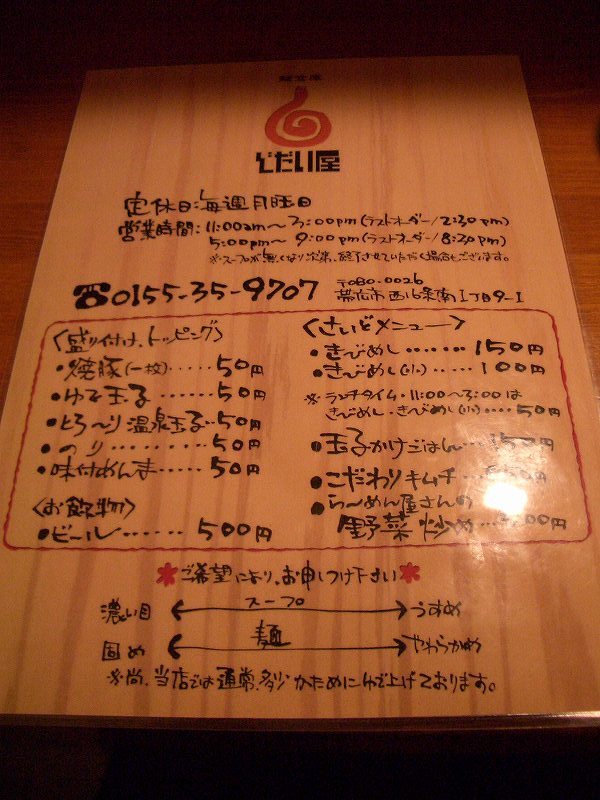 じだい屋
定休日:毎週月曜日
営業時間:11:00am〜3:00pm(ラストオーダー/2:30pm)
5:00pm〜9:00pm(ラストオーダー/8:30pm)
※スープが無くなり次第、終了させていただく場合もございます。
☎0155-35-9707
〒080-0026
帯広市西16条南1丁目9-1
〈盛り付け、トッピング〉
・焼豚(一枚)‥‥‥50円
・ゆで玉子‥‥‥50円
・とろ〜り温泉玉子‥50円
・のり‥‥‥‥‥50円
・味付めんま‥‥‥50円
〈お飲物〉
・ビール‥‥‥500円
〈さいどメニュー〉
・きびめし‥‥‥150円
・きびめし(小)‥‥100円
※ランチタイム・11:00〜3:00は
きびめし・きびめし(小)‥‥50円
・玉子かけごはん
・こだわりキムチ
・らーめん屋さんの
野菜炒め
ご希望により、お申しつけ下さい
濃い目 スープ うすめ
固め 麺 やわらかめ
※尚、当店では通常、多少かためにゆで上げております。